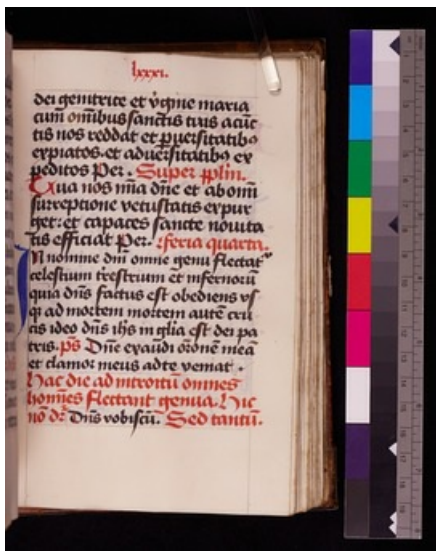 lxxxi.
dei genitrite et v̇gine maria
cum om̄ibus sanctis tuis acūc
tis nos reddat et ꝑuersitatibꝰ
expiatos. et aduersitatibꝰ ex
peditos Per. Super pplm̄.
Tua nos mīa dn̄e et ab om̄i
surreptione vetustatis expur
get: et capaces sancte nouita
tis efficiat Per. feria quarta.
In nomine dn̄i omne genu flectat᷑
celestium trestrium et infernorū
quia dn̄s factus est obediens vs
qꝫ ad mortem mortem autē cru
cis ideo dn̄s ih̄s in gl̄ia est dei pa
tris. p̄s Dn̄e exaudi or̄onē meā
et clamor meus ad te veniat.
Hac die ad introitū omnes
hom̄es flectant genua. Hic
nō dr̄ Dn̄s vobiscū. Sed tantū.